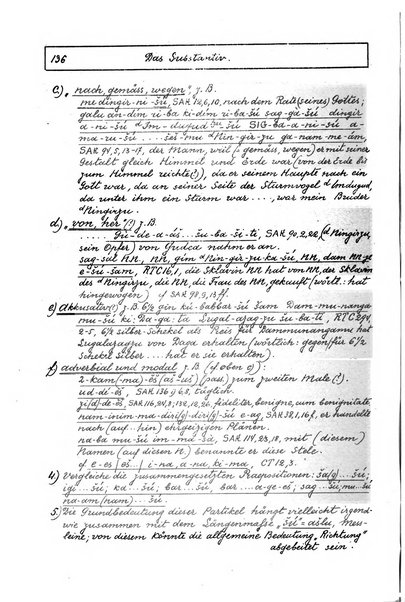 136 Das Substantiv.
c) „nach, gemäss, wegen“, z.B.
me dingir-ni-šú, SAK 72,6,10, nach dem Rate (seines) Gottes;
galu an-dim ri-ba ki-dim ri-ba-šú sag-gá-šú dingir
a-ni-šú ᵈIm-dugud šú SIG-ba-a-ni-šú a-
ma-ru šú mu ᵈNin-gir-zu ga-nam-me-ám,
SAK 94,5,13-17, der Mann, weil (gemäss, wegen) er mit seiner
Gestalt gleich Himmel und Erde war (von der Erde bis
zum Himmel reichte(?)), da er seinem Haupte nach ein
Gott war, da an seiner Seite der Sturmvogel ᵈImdugud,
da unter ihm ein Sturm war ...., war mein Bruder
ᵈNingirzu.
d) „von, her“(?) z.B.
Gù-de-a-áš ... šu-ba-ši-ti, SAK 90,2,22, (ᵈNingirzu,
sein Opfer) von Gudea nahm er an.
sag-sal NN, NN, gim ᵈNin-gir-zu-ka-šú NN, dam NN-ge
e-šú-šam, RTC 16,1, die Sklavin NN hat von NN, der Sklavin
des ᵈNingirzu, die NN, die Frau des NN, gekauft (wörtl.: hat
hingewogen) cf SAK 98,9,13 ff.
e) Akkusativ(?) z.B. 6½ gin kù-babbar šú šam Dam-mu-nanga
mu-šú ki-Da-ga-ta Lugal-azag-zu šu-ba-ti, RTC 294,
2-5, 6½ Silber-Schekel als Preis für Dammunangamu hat
Lugalazagzu von Daga erhalten (wörtlich: gegen/für 6½
Schekel Silber .... hat er sie erhalten).
f) adverbial und modal, z.B. (cf oben g):
2-kam(-ma)-éš (áš=uš) (pass.) zum zweiten Male (?).
ud-dé-éš, SAK 136, täglich.
zi(d)-dé-éš SAK fideliter, benigne, cum benignitate,
nam-inim-ma-diri(g)-diri(g)-šú e-ag, SAK 38, er handelte
nach (auf...hin) ehrgeizigen Plänen.
na-ba mu-šú im-ma-sá, SAK 114, 23,18, mit (diesem)
Namen (auf diesen N.) benannte er diese Stele.
cf e-eš | éš... | i-na, a-na, ki-ma, CT 12,3.
4) Vergleiche die zusammengesetzten Praepositionen: ša(g)... šú;
igi ... šú; ka ... šú, bar ... šú, bar ... a-ge-eš; sag ... šú; mu ... šú
na-am(nam) ... šú.
5.) Die Grundbedeutung dieser Partikel hängt vielleicht irgend-
wie zusammen mit dem Längenmaße „šú“=aslu, Mess-
leine; von diesem könnte die allgemeine Bedeutung „Richtung“
abgeleitet sein.